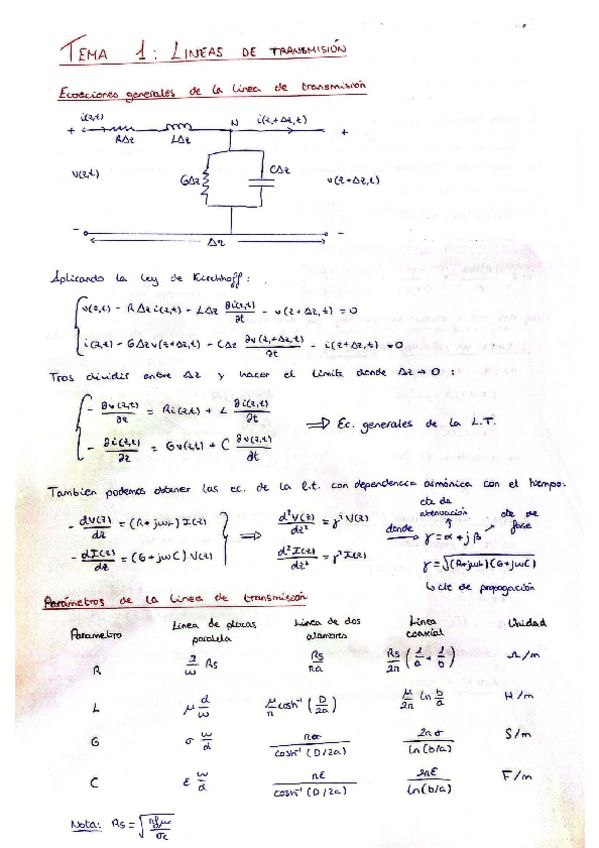 TEMA 1: LINEAS DE TRANSMISIÓN
Ecuaciones generales de la linea de transmisión
i(z,t) N i(z+Δz,t)
+ RΔz LΔz +
v(z,t) GΔz CΔz v(z+Δz,t)
- Δz -
Aplicando la ley de Kirchhoff:
v(z,t) - RΔz i(z,t) - LΔz ∂i(z,t)/∂t - v(z+Δz,t) = 0
i(z,t) - GΔz v(z+Δz,t) - CΔz ∂v(z+Δz,t)/∂t - i(z+Δz,t) = 0
Tras dividir entre Δz y hacer el limite donde Δz → 0:
- ∂v(z,t)/∂z = Ri(z,t) + L ∂i(z,t)/∂t
⇒ Ec. generales de la L.T.
- ∂i(z,t)/∂z = Gv(z,t) + C ∂v(z,t)/∂t
Tambien podemos obtener las ec. de la l.t. con dependencia armónica con el tiempo:
- dV(z)/dz = (R+jωL) I(z) ⇒ d²V(z)/dz² = γ² V(z)
- dI(z)/dz = (G+jωC) V(z) d²I(z)/dz² = γ² I(z)
cte de atenuación cte de fase
donde γ = α + jβ
γ = √(R+jωL)(G+jωC)
↳ cte de propagación
Parámetros de la linea de transmisión
Parametro Linea de placas paralela Linea de dos alambres Linea coaxial Unidad
R 2/w Rs Rs/πa Rs/2π (1/a + 1/b) Ω/m
L μ d/w μ/π cosh⁻¹ (D/2a) μ/2π ln b/a H/m
G σ w/d πσ/cosh⁻¹(D/2a) 2πσ/ln(b/a) S/m
C ε w/d πε/cosh⁻¹(D/2a) 2πε/ln(b/a) F/m
Nota: Rs = √πfμc/σc